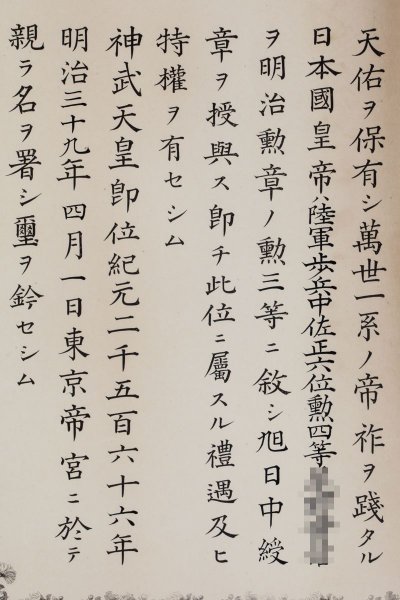 天佑ヲ保有シ萬世一系ノ帝祚ヲ踐タル
日本國皇帝ハ陸軍歩兵中佐正六位勲四等
ヲ明治勲章ノ勲三等ニ敘シ旭日中綬
章ヲ授與ス即チ此位ニ屬スル禮遇及ヒ
特權ヲ有セシム
神武天皇即位紀元二千五百六十六年
明治三十九年四月一日東京帝宮ニ於テ
親ラ名ヲ署シ璽ヲ鈐セシム